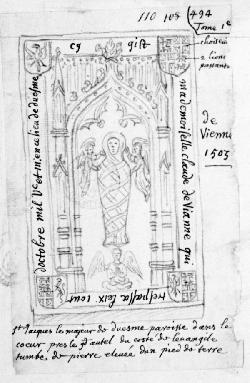 110 108 494
Tome 1e
cy gist
mademoiselle claude de Vianne qui
trespassa le ix iour
doctobre mil Vc et iii en ce lieu de duesme
2 lions
passants
de
Vienne
1503
St Jacques le majeur de duesme paroisse dans le
coeur pres le gd autel du coste de levangile
tumbe de pierre elevée dun pied de terre